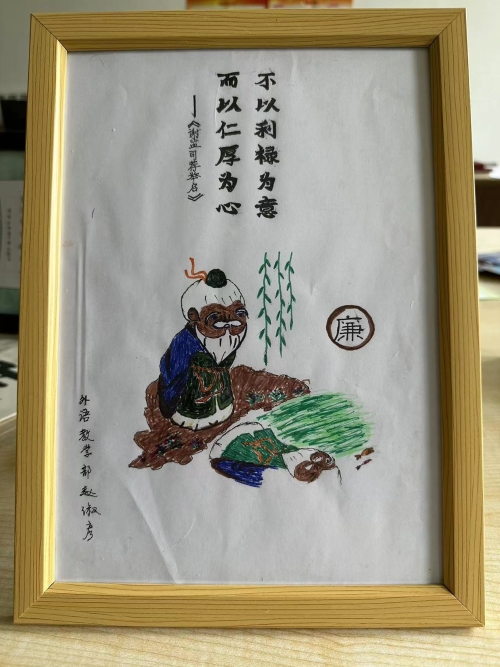 不以利禄为意
而以仁厚为心
——《谢监司荐举启》
廉
外语教学部赵 彦